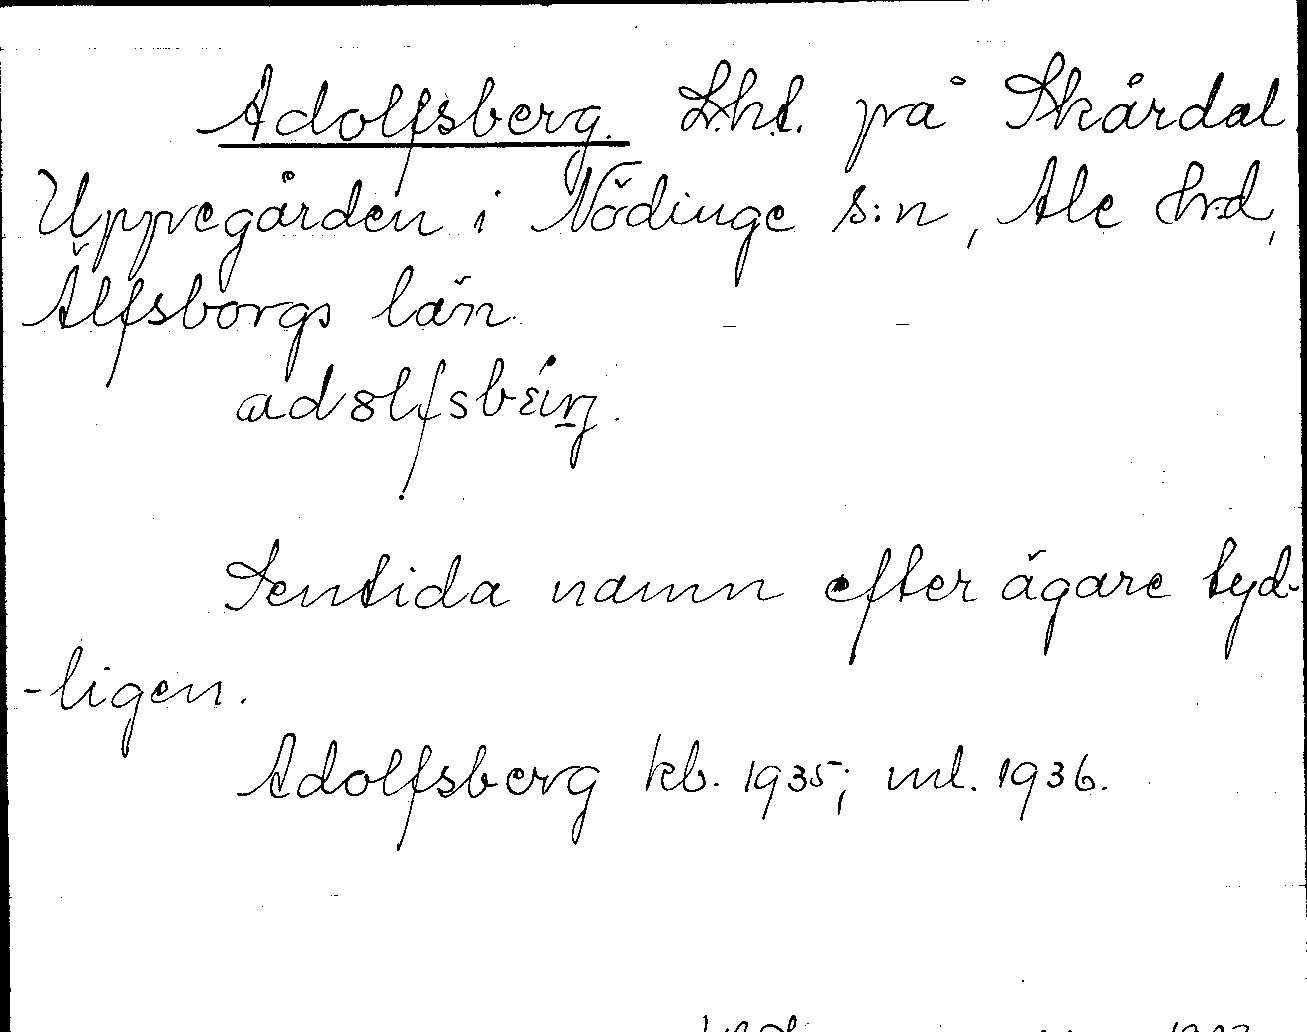 Adolfsberg. Lht. på Skårdal
Uppegården i Nödinge s:n, Ale hd,
Älfsborgs län.
adolfsbærj.
Sentida namn efter ägare tyd-
-ligen.
Adolfsberg kb. 1935; ml. 1936.